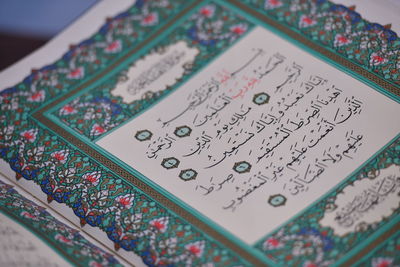 بِسْمِ اللّٰهِ الرَّحْمٰنِ الرَّحِيمِ
اَلْحَمْدُ لِلّٰهِ رَبِّ الْعَالَمِينَ ۝ اَلرَّحْمٰنِ
الرَّحِيمِ ۝ مَالِكِ يَوْمِ الدِّينِ ۝
اِيَّاكَ نَعْبُدُ وَاِيَّاكَ نَسْتَعِينُ ۝
اِهْدِنَا الصِّرَاطَ الْمُسْتَقِيمَ ۝ صِرَاطَ
الَّذِينَ اَنْعَمْتَ عَلَيْهِمْ غَيْرِ الْمَغْضُوبِ
عَلَيْهِمْ وَلَا الضَّالِّينَ ۝